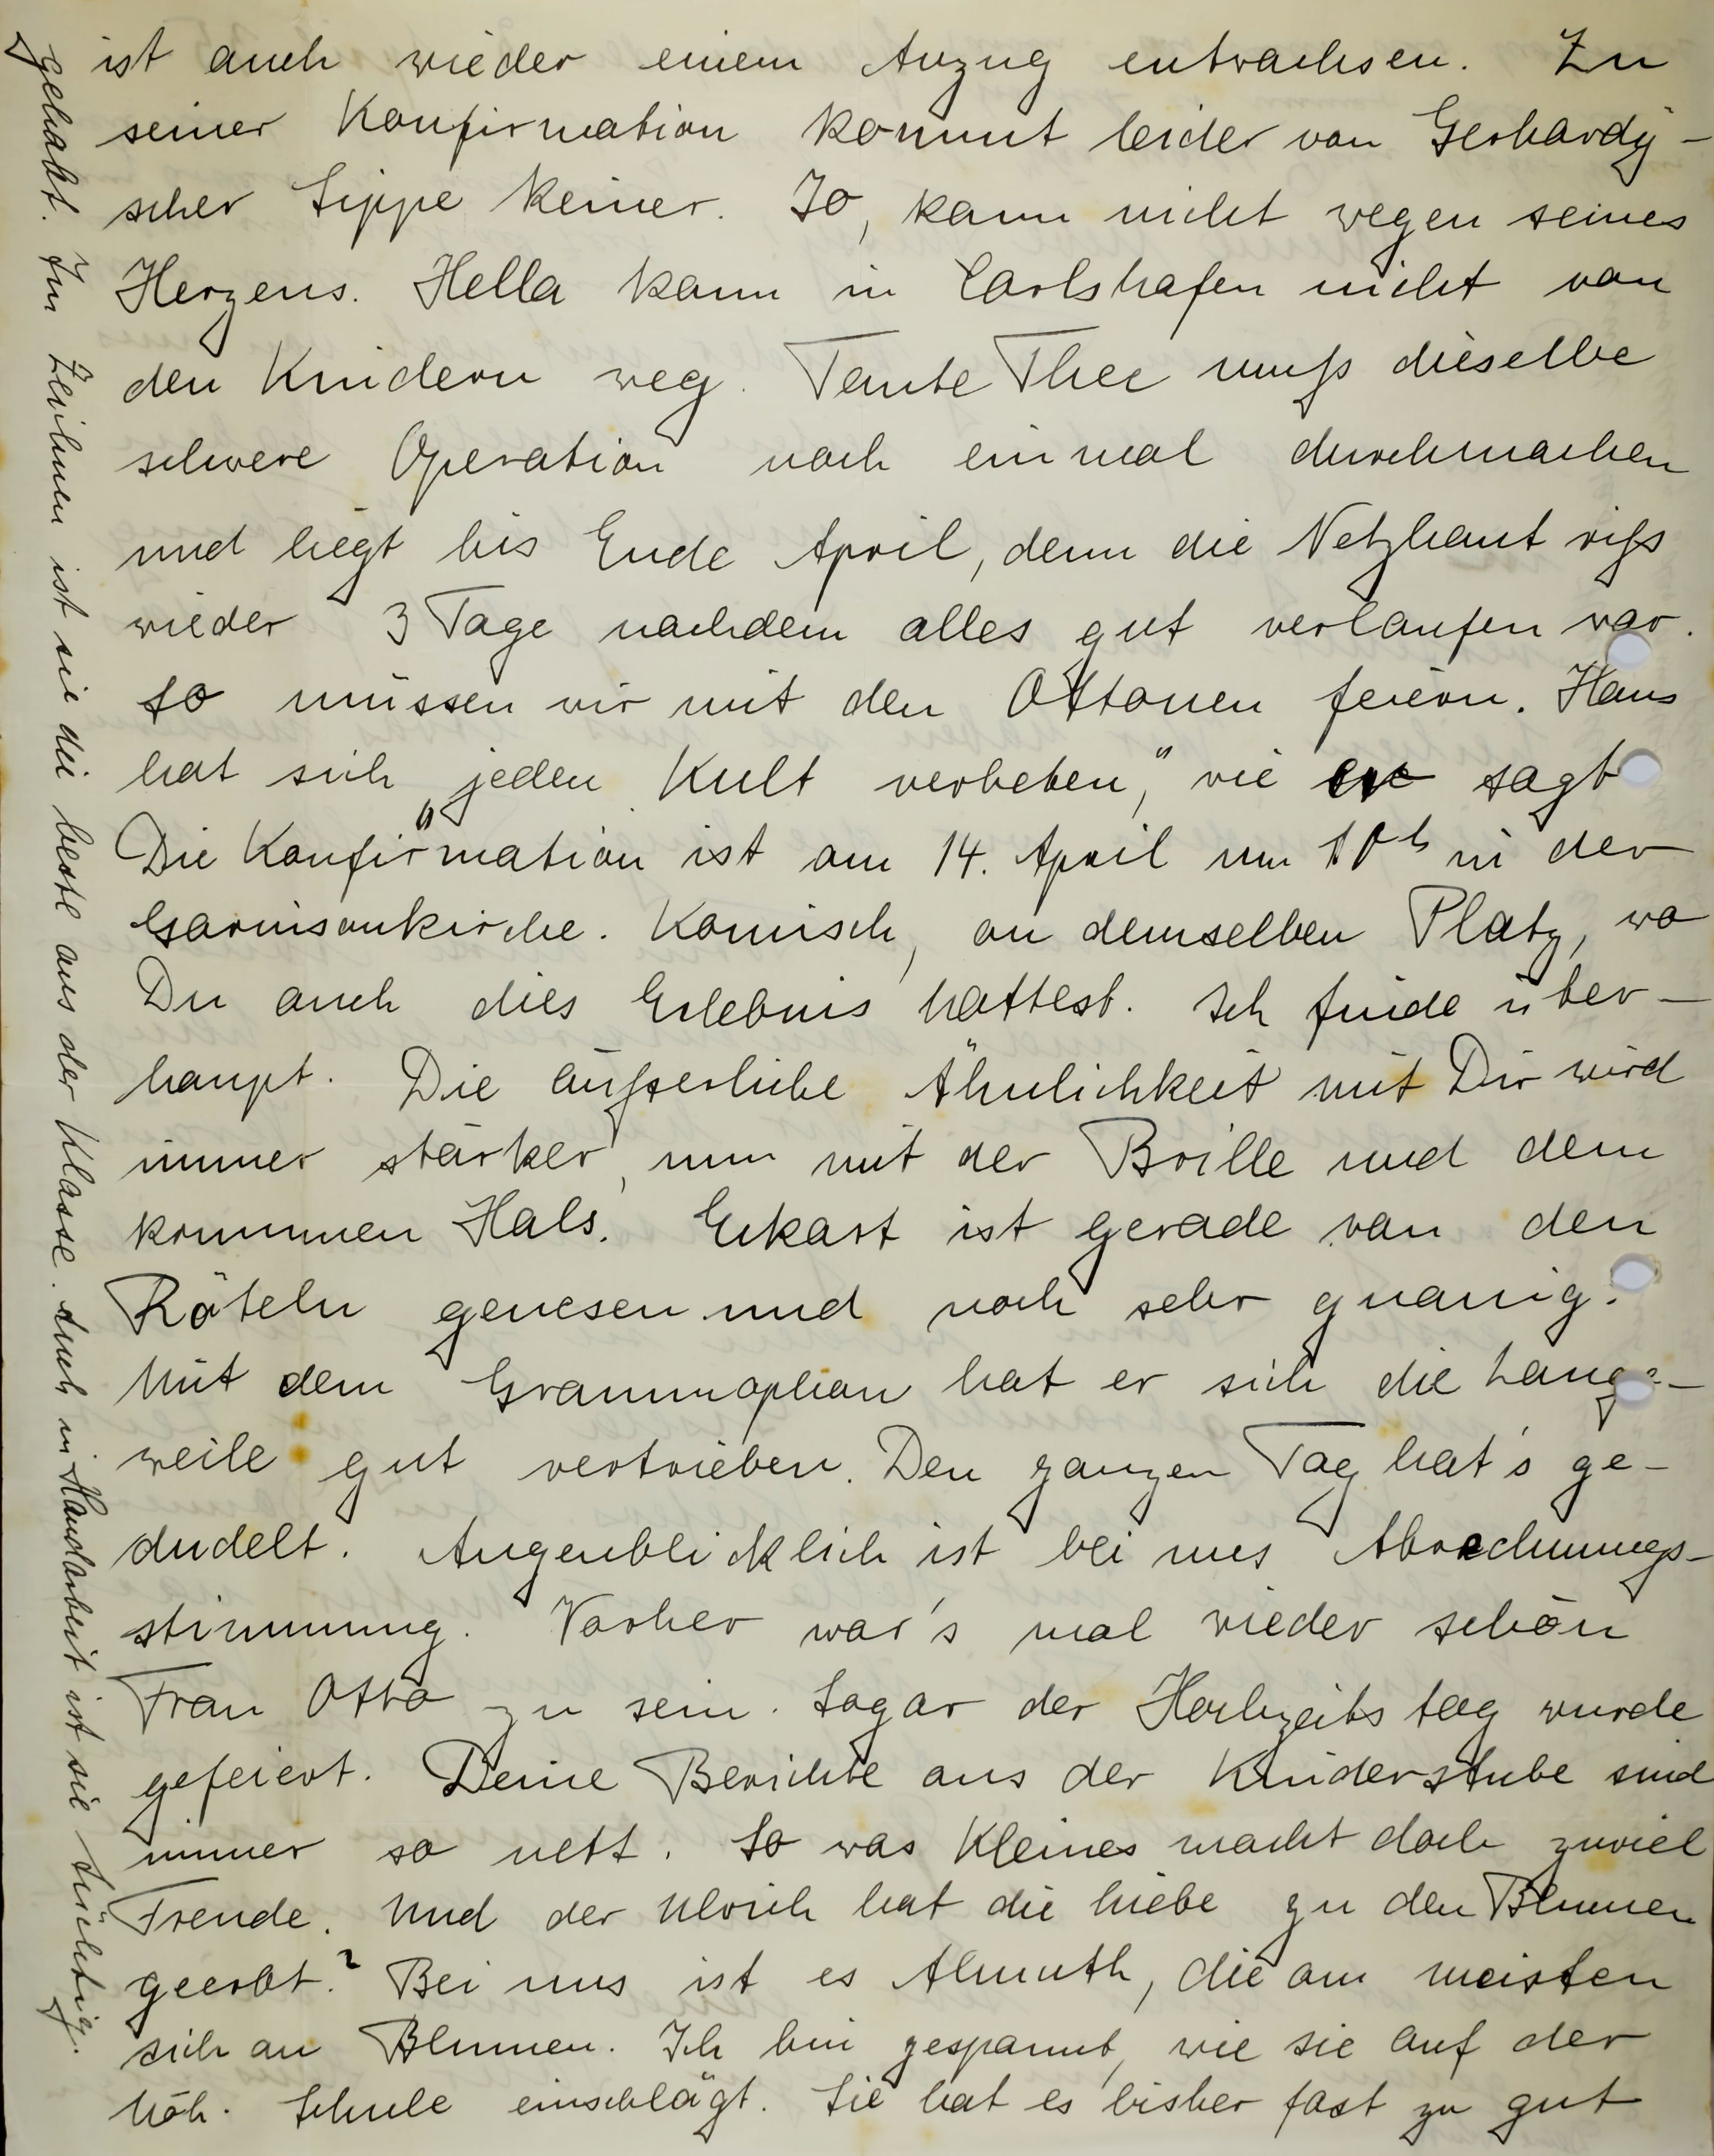 ist auch wieder einem Anzug entwachsen. Zu
seiner Konfirmation kommt leider von Gerhardy-
scher Sippe keiner. Jo, kann nicht wegen seines
Herzens. Hella kann in Carlshafen nicht von
den Kindern weg. Tante Thee muß dieselbe
schwere Operation noch einmal durchmachen
und liegt bis Ende April, denn die Netzhaut riß
wieder 3 Tage nachdem alles gut verlaufen war.
So müssen wir mit den Ottonen feiern. Hans
hat sich „jeden Kult verbeten", wie er sagt
Die Konfirmation ist am 14. April um 10h in der
Garnisonkirche. Komisch, an demselben Platz, wo
Du auch dies Erlebnis hattest. Ich finde über-
haupt. Die äußerliche Ähnlichkeit mit Dir wird
immer stärker, nun mit der Brille und dem
krummen Hals. Eckart ist gerade von den
Röteln genesen und noch sehr gnarrig.
Mit dem Grammophon hat er sich die Lange-
weile gut vertrieben. Den ganzen Tag hat's ge-
dudelt. Augenblicklich ist bei uns Abrechnungs-
stimmung. Vorher war's mal wieder schön
Frau Otto zu sein. Sogar der Hochzeitstag wurde
gefeiert. Deine Berichte aus der Kinderstube sind
immer so nett. So was Kleines macht doch zuviel
Freude. Und der Ulrich hat die Liebe zu den Blumen
geerbt? Bei uns ist es Almuth, die am meisten
sich an Blumen. Ich bin gespannt, wie sie auf der
höh. Schule einschlägt. Sie hat es bisher fast zu gut
gehabt. Im Zeichnen ist sie die beste aus der Klasse. Auch in Handarbeit ist sie tüchtig.